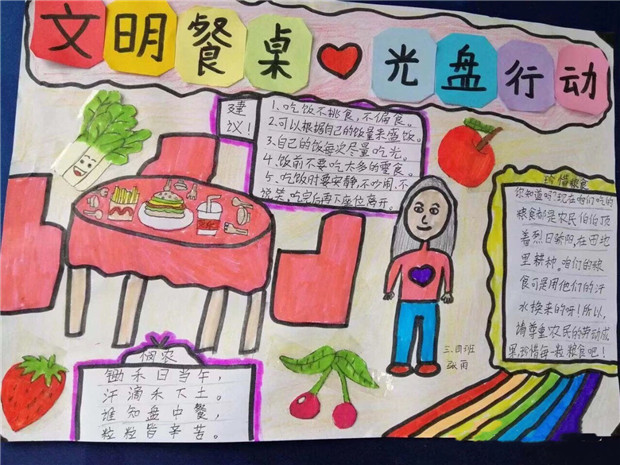 文明餐桌 光盘行动
建议!
1.吃饭不挑食,不偏食。
2.可以根据自己的饭量来盛饭。
3.自己的饭每次尽量吃光。
4.饭前不要吃太多的零食。
5.吃饭时要安静,不吵闹,不
说笑,吃完后再下座位离开。
珍惜粮食
你知道吗?现在咱们吃的
粮食都是农民伯伯顶
着烈日骄阳,在田地
里耕种。咱们的粮
食可是用他们的汗
水换来的呀!所以,
请尊重农民的劳动成
果,珍惜每一粒粮食吧!
悯农
锄禾日当午,
汗滴禾下土。
谁知盘中餐,
粒粒皆辛苦。
三.四班